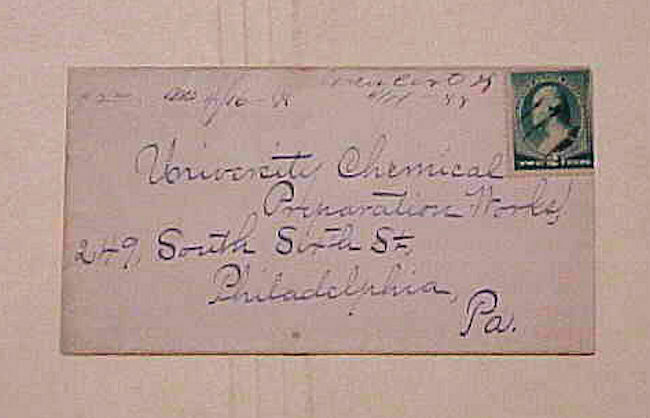 University Chemical
Preparation Works,
249, South Sixth St,
Philadelphia,
Pa.